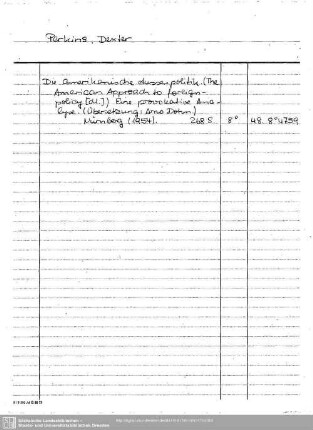 Perkins, Dexter
Die Amerikanische Aussenpolitik. (The
American Approach to foreign-
policy [dt.]) Eine provokative Ana-
lyse. (Übersetzung: Arno Dohm)
Nürnberg (1954). 268 S. 8° 48. 8° 4759
Sächsische Landesbibliothek -
Staats- und Universitätsbibliothek Dresden